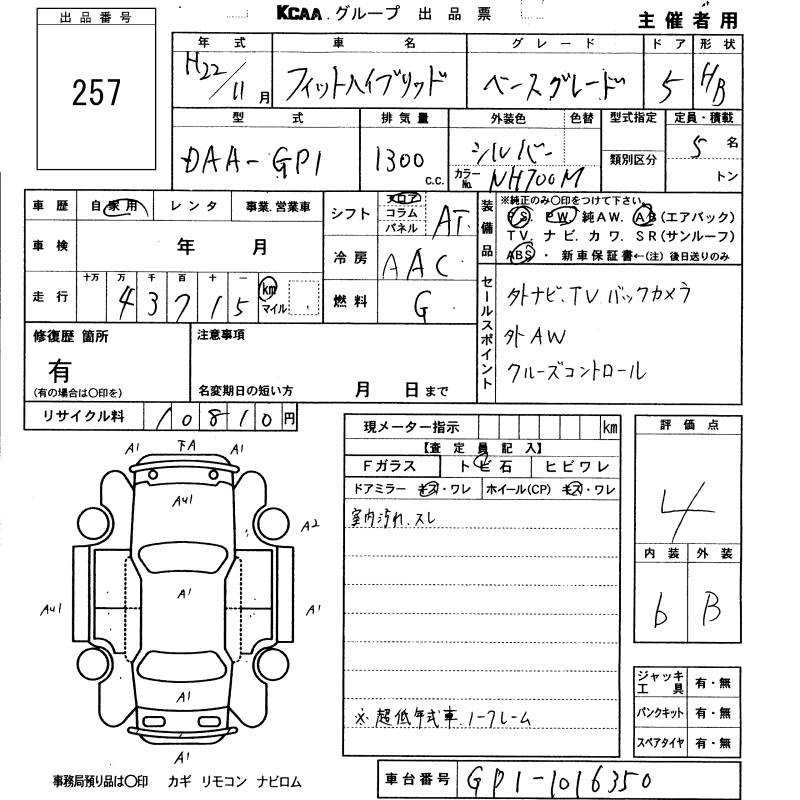 KCAA グループ 出品票
主催者用
出品番号
257
年式 車名 グレード ドア 形状
H22/11月 フィットハイブリッド ベースグレード 5 HB
型式 排気量 外装色 色替 型式指定 定員・積載
DAA-GP1 1300 c.c. シルバー 5名
カラーNo. NH700M 類別区分 トン
車歴 自家用 レンタ 事業.営業車
シフト フロア コラム パネル AT
装備品 ※純正のみ○印をつけて下さい。
P.S. P.W. 純AW. AB(エアバック)
TV. ナビ. カワ. SR(サンルーフ)
ABS・新車保証書←(注)後日送りのみ
車検 年 月
冷房 AAC
走行 十万 万 千 百 十 一
43715 km マイル
燃料 G
セールスポイント
外ナビ、TV バックカメラ
外AW
クルーズコントロール
修復歴 箇所
有
(有の場合は○印を)
注意事項
名変期日の短い方 月 日まで
リサイクル料 10810円
現メーター指示 km
【査定員記入】
Fガラス トビ石 ヒビワレ
ドアミラー キズ・ワレ ホイール(CP) キズ・ワレ
室内汚れ、スレ
※超低年式車 ノークレーム
評価点
4
内装 外装
6 B
A1 下A A1
A41
A2
A1
A41
A1
A1
A1
ジャッキ工具 有・無
パンクキット 有・無
スペアタイヤ 有・無
事務局預り品は○印 カギ リモコン ナビロム
車台番号 GP1-1016350